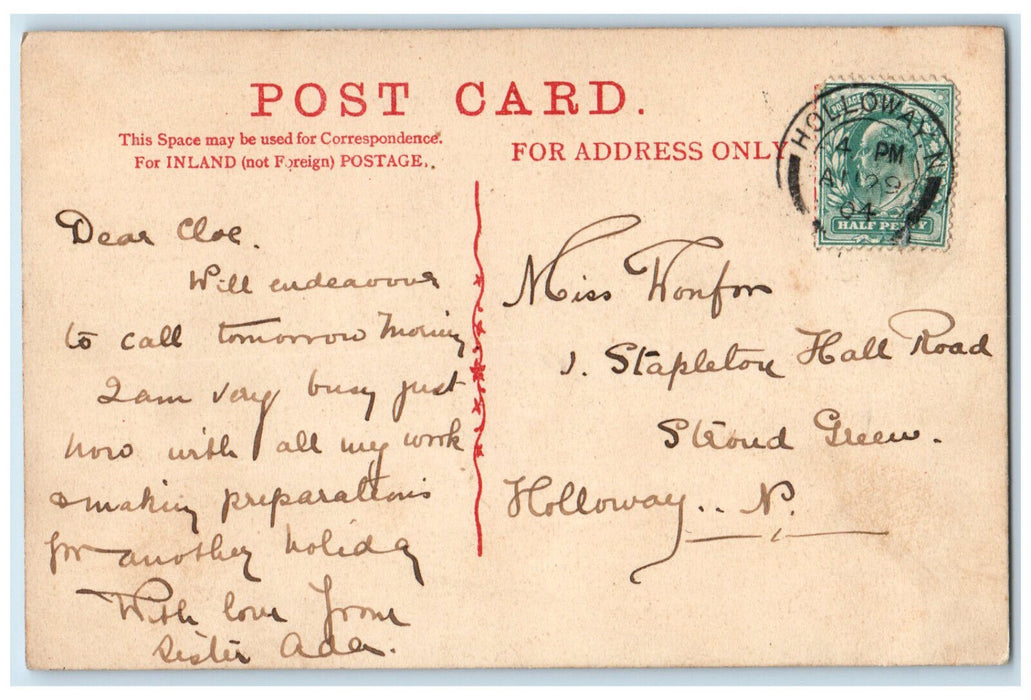 POST CARD.
This Space may be used for Correspondence.
For INLAND (not Foreign) POSTAGE.
FOR ADDRESS ONLY
HOLLOWAY. N
4 PM
AU 29
04
HALF PENNY
Dear Cloe.
Will endeavour
to call tomorrow morning
I am very busy just
now with all my work
& making preparations
for another holiday
With love from
Sister Ada.
Miss Wonfor
1. Stapleton Hall Road
Stroud Green.
Holloway.. N.